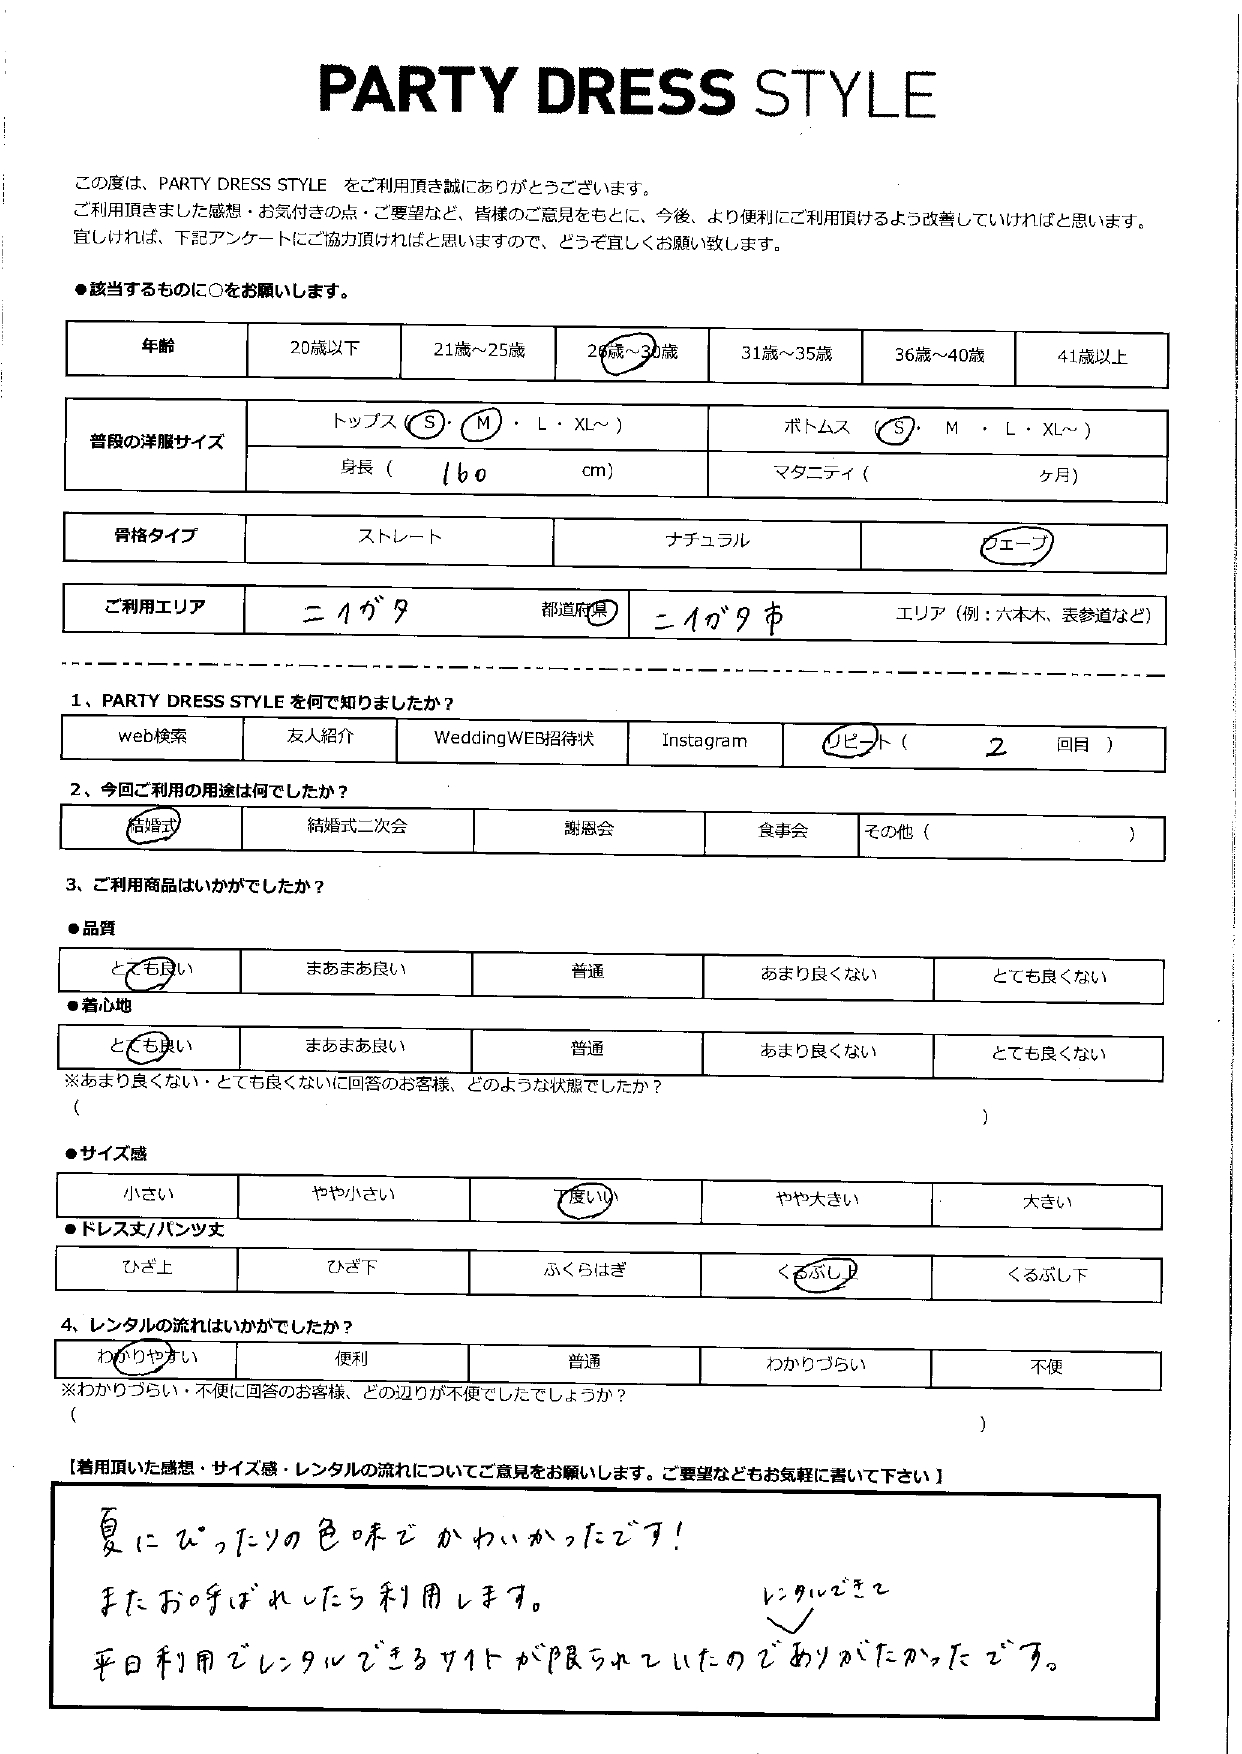 PARTY DRESS STYLE
この度は、PARTY DRESS STYLE をご利用頂き誠にありがとうございます。
ご利用頂きました感想・お気付きの点・ご要望など、皆様のご意見をもとに、今後、より便利にご利用頂けるよう改善していければと思います。
宜しければ、下記アンケートにご協力頂ければと思いますので、どうぞ宜しくお願い致します。
●該当するものに○をお願いします。
年齢 20歳以下 21歳～25歳 26歳～30歳 31歳～35歳 36歳～40歳 41歳以上
普段の洋服サイズ トップス (S・M・L・XL～) ボトムス (S・M・L・XL～)
身長 ( 160 cm) マタニティ ( ヶ月)
骨格タイプ ストレート ナチュラル ウェーブ
ご利用エリア ニイガタ 都道府県 ニイガタ市 エリア (例：六本木、表参道など)
1、PARTY DRESS STYLE を何で知りましたか？
web検索 友人紹介 WeddingWEB招待状 Instagram リピート ( 2 回目 )
2、今回ご利用の用途は何でしたか？
結婚式 結婚式二次会 謝恩会 食事会 その他 ( )
3、ご利用商品はいかがでしたか？
●品質
とても良い まあまあ良い 普通 あまり良くない とても良くない
●着心地
とても良い まあまあ良い 普通 あまり良くない とても良くない
※あまり良くない・とても良くないに回答のお客様、どのような状態でしたか？
( )
●サイズ感
小さい やや小さい 丁度いい やや大きい 大きい
●ドレス丈/パンツ丈
ひざ上 ひざ下 ふくらはぎ くるぶし上 くるぶし下
4、レンタルの流れはいかがでしたか？
わかりやすい 便利 普通 わかりづらい 不便
※わかりづらい・不便に回答のお客様、どの辺りが不便でしたでしょうか？
( )
【着用頂いた感想・サイズ感・レンタルの流れについてご意見をお願いします。ご要望などもお気軽に書いて下さい】
夏にぴったりの色味でかわいかったです！
またお呼ばれしたら利用します。
レンタルできて
平日利用でレンタルできるサイトが限られていたのでありがたかったです。